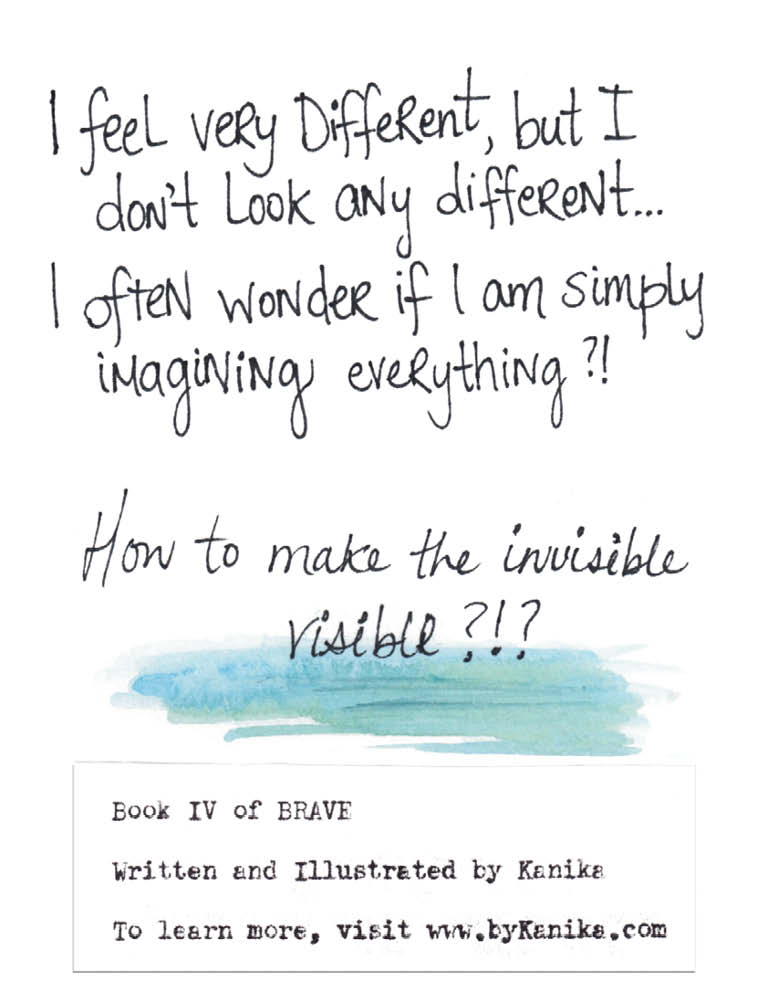 I feel very Different, but I
don't Look any different...
I often wonder if I am simply
imagining everything?!
How to make the invisible
visible?!?
Book IV of BRAVE
Written and Illustrated by Kanika
To learn more, visit www.byKanika.com